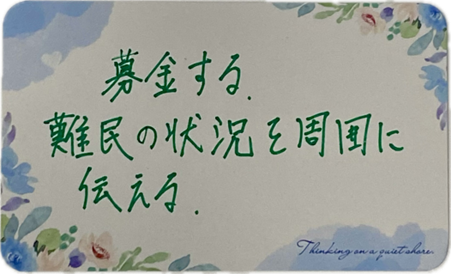 募金する.
難民の状況を周囲に
伝える.
Thinking on a quiet shore.